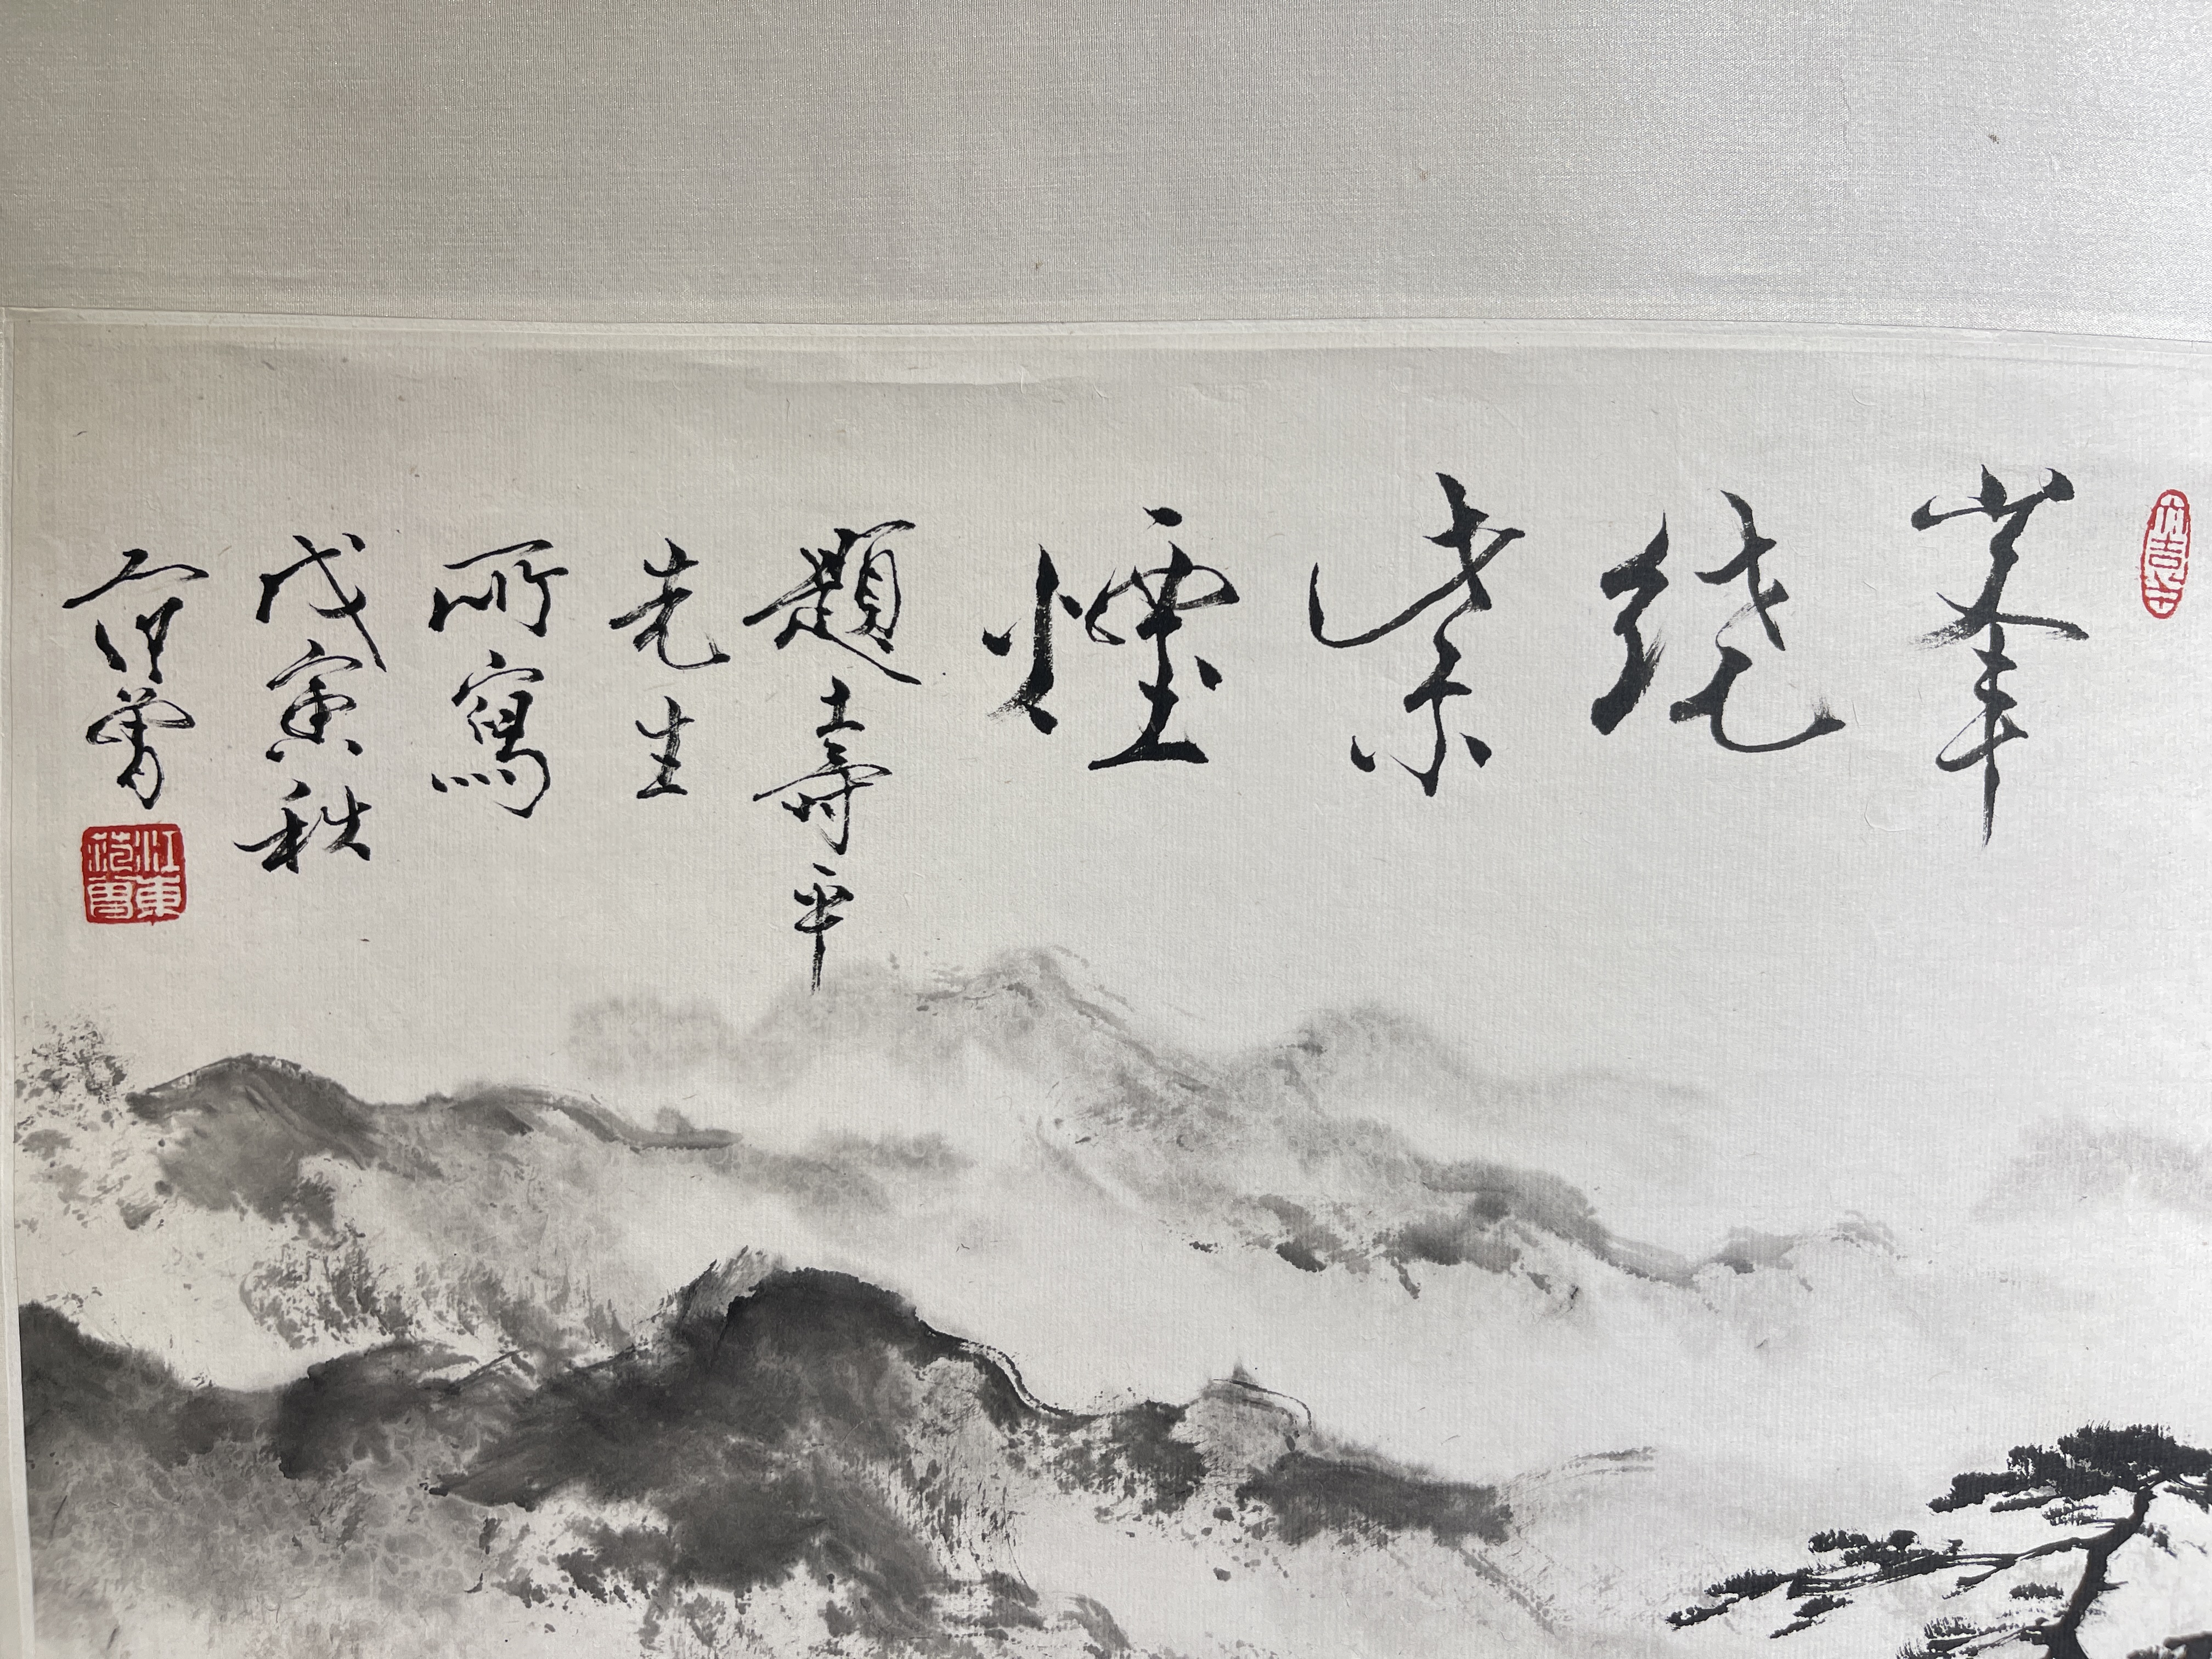 峯繞紫煙
題壽平
先生
所寫
戊寅秋
范曾
江東范曾